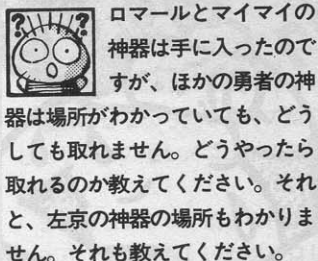 ロマールとマイマイの
神器は手に入ったので
すが、ほかの勇者の神
器は場所がわかっていても、どう
しても取れません。どうやったら
取れるのか教えてください。それ
と、左京の神器の場所もわかりま
せん。それも教えてください。